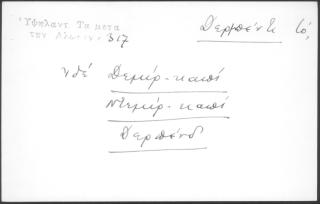 Ὑψηλαντ. Τα μετα
την Ἅλωσιν. 317
Δερμπένδ τό,
ἰδέ Δεμίρ-καπί
Ντεμίρ-καπί
Δερβένδ